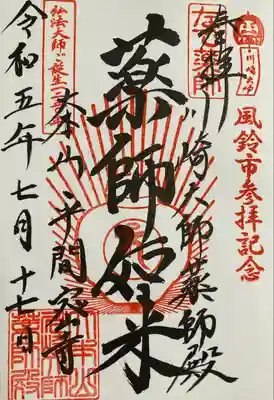 奉拝
風鈴市参拝記念
川崎大師薬師殿
薬師如来
大本山 平間寺
弘法大師ご誕生一二五〇年
令和五年七月十七日